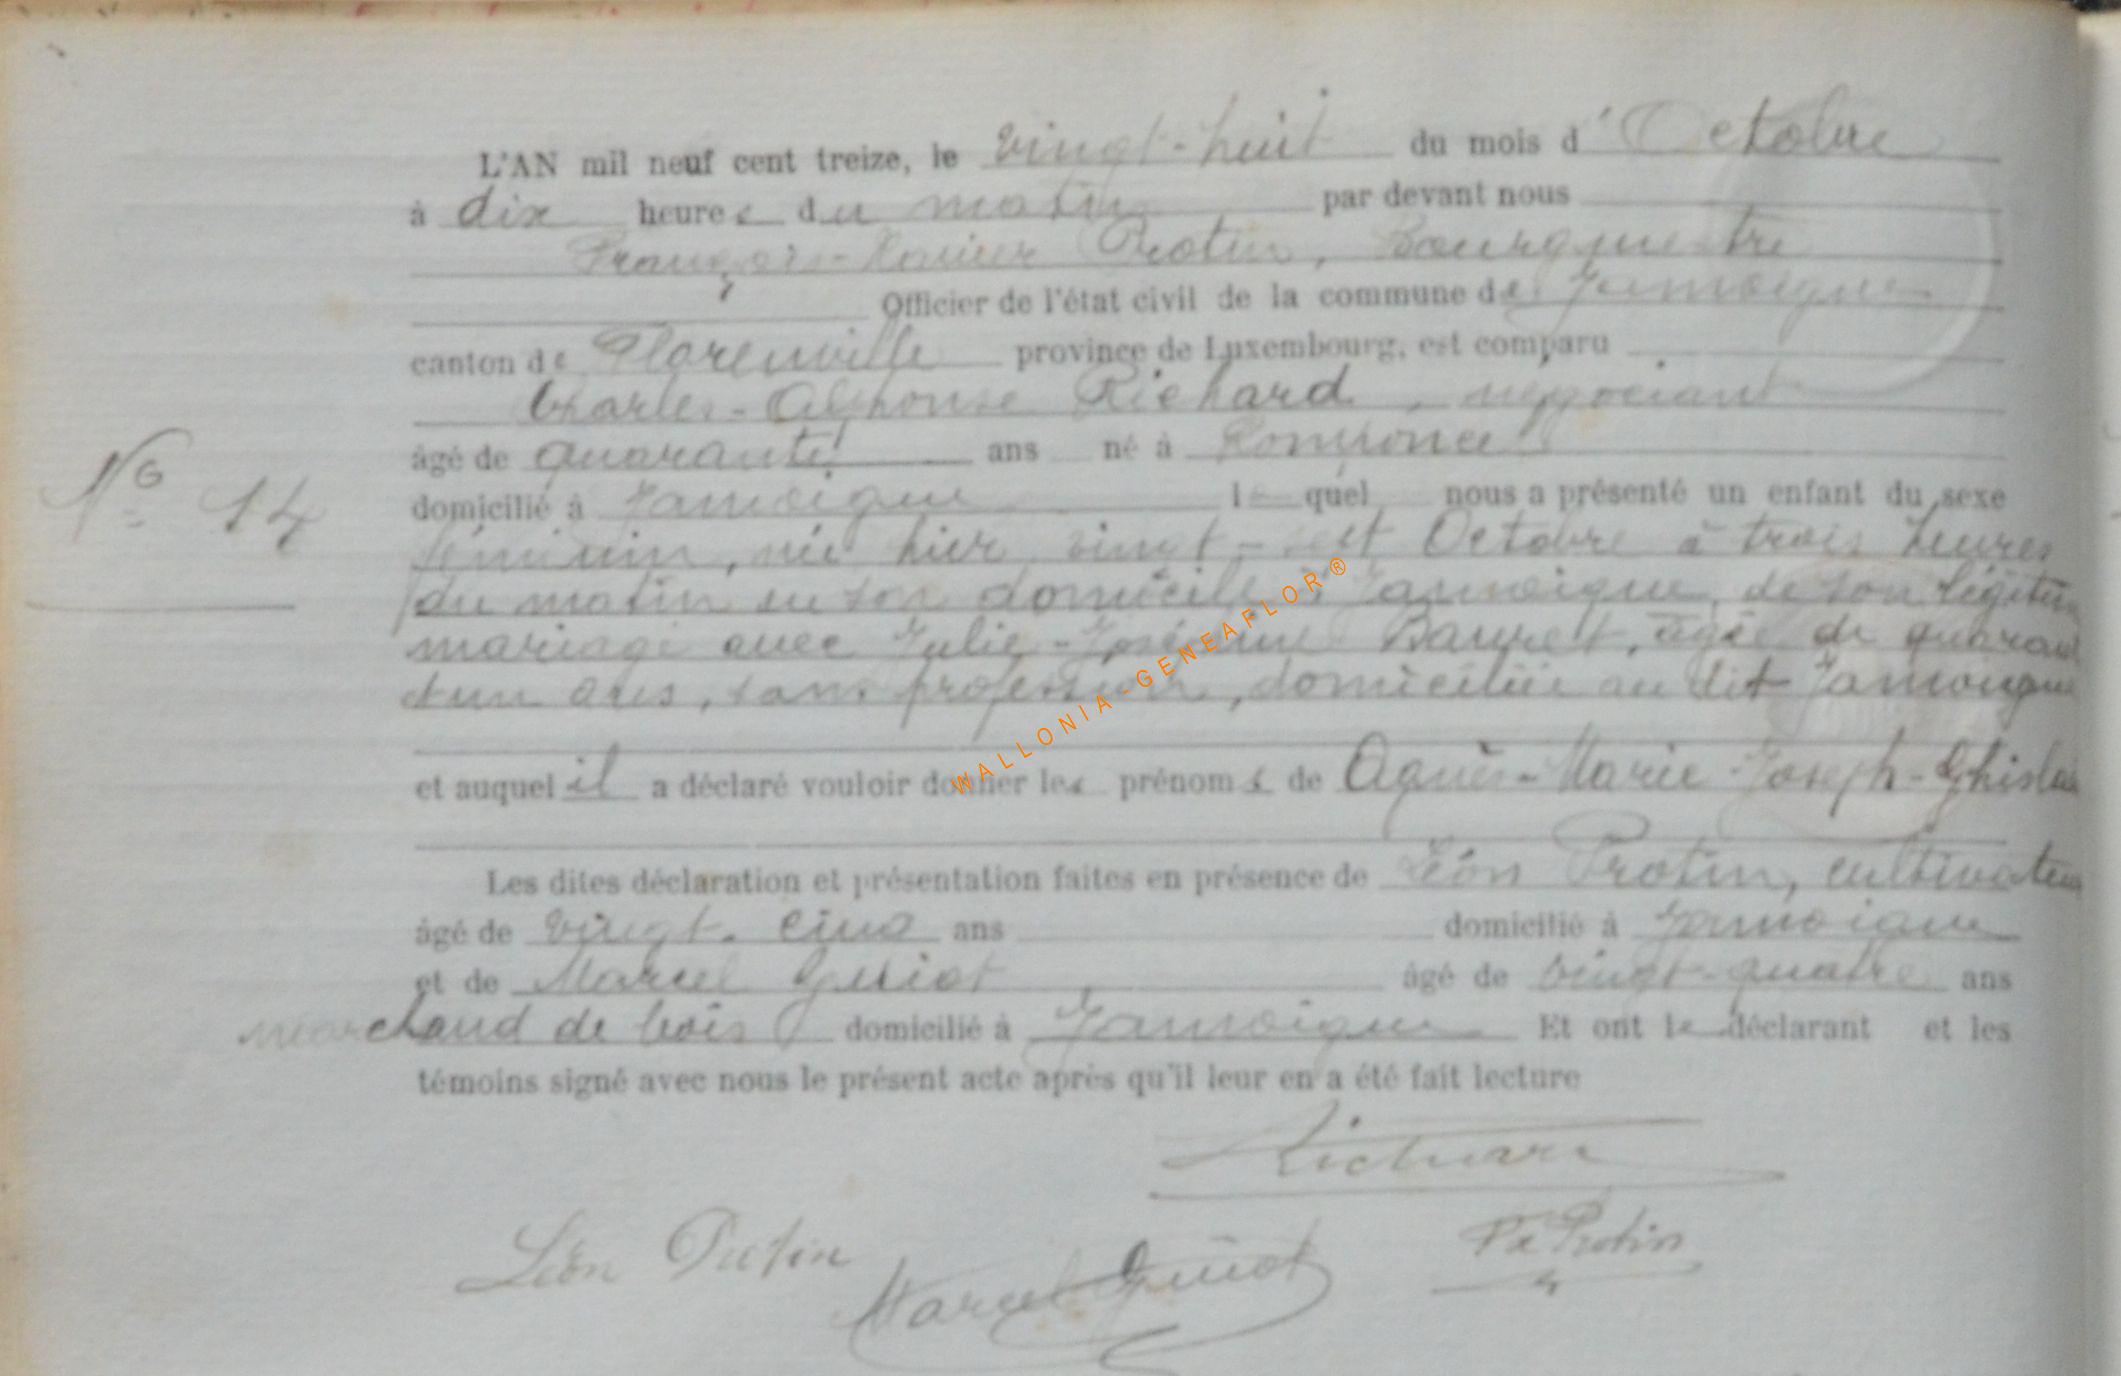 L'AN mil neuf cent treize, le vingt-huit du mois d'Octobre
à dix heures du matin par devant nous
François-Xavier Protin, Bourgmestre
Officier de l'état civil de la commune de Jamoigne
canton de Florenville province de Luxembourg, est comparu
Charles-Alphonse Richard, négociant
âgé de quarante ans né à
N° 14
domicilié à Jamoigne lequel nous a présenté un enfant du sexe
féminin, née hier vingt-sept Octobre à trois heures
du matin en son domicile à Jamoigne, de son légitime
mariage avec Julie-Joséphine âgée de quarante
et un ans, sans profession, domiciliée au dit Jamoigne
WALLONIA-GENEAFLOR®
et auquel il a déclaré vouloir donner les prénoms de Agnès-Marie-Joseph-Ghislaine
Les dites déclaration et présentation faites en présence de Léon Protin, cultivateur
âgé de vingt-cinq ans domicilié à Jamoigne
et de Marcel Guiot âgé de vingt-quatre ans
marchand de bois domicilié à Jamoigne Et ont le déclarant et les
témoins signé avec nous le présent acte après qu'il leur en a été fait lecture
Richard
Léon Protin Marcel Guiot Fx Protin